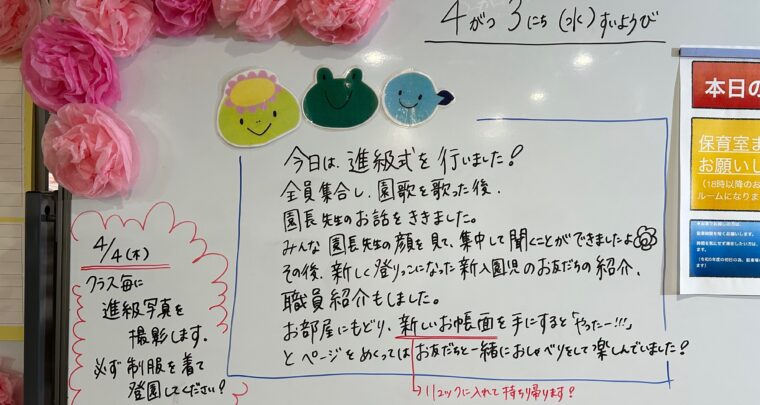 4がつ 3にち (水) すいようび
今日は、進級式を行いました!
全員集合し、園歌を歌った後、
園長先生のお話をききました。
みんな園長先生の顔を見て、集中して聞くことができましたよ
その後、新しく登りっこになった新入園児のお友だちの紹介、
職員紹介もしました。
お部屋にもどり、新しいお帳面を手にすると「やったー!!!」
とページをめくってはお友だちと一緒におしゃべりをして楽しんでいました!
→リュックに入れて持ち帰ります!
4/4(木)
クラス毎に
進級写真を
撮影します。
必ず制服を着て
登園してください!
本日の
保育室ま
お願いし
(18時以降のお
ルームになりま